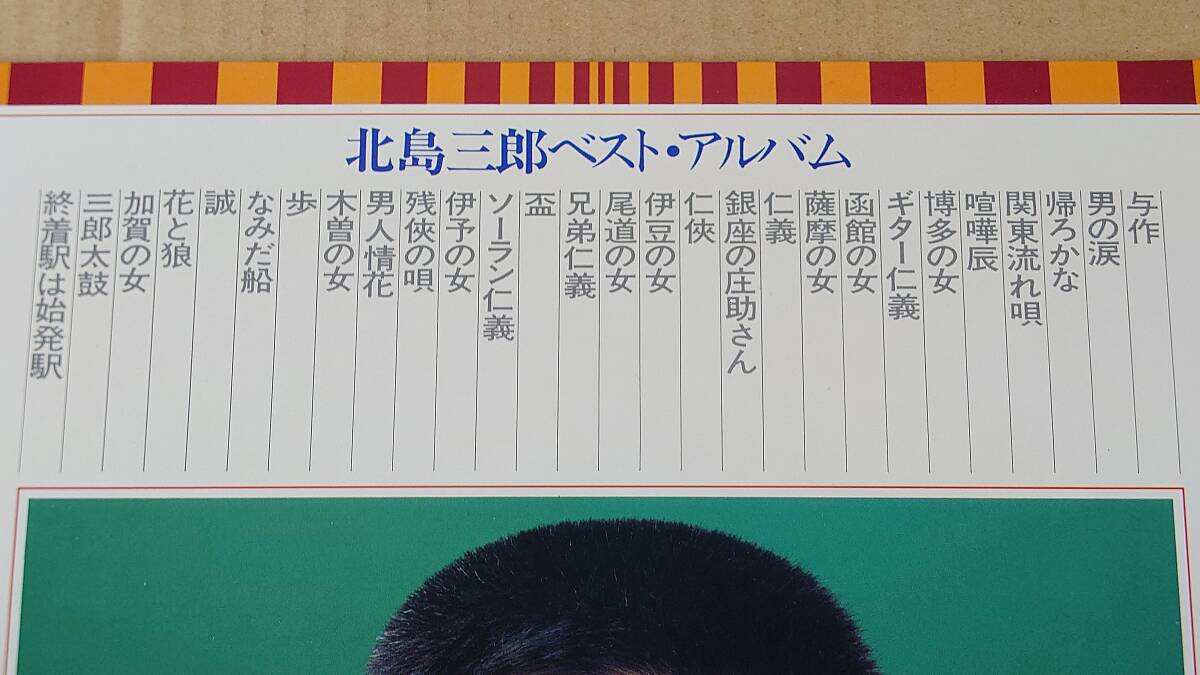 北島三郎ベスト・アルバム
与作
男の涙
帰ろかな
関東流れ唄
喧嘩辰
博多の女
ギター仁義
函館の女
薩摩の女
仁義
銀座の庄助さん
仁侠
伊豆の女
尾道の女
兄弟仁義
盃
ソーラン仁義
伊予の女
残侠の唄
男人情花
木曽の女
歩
なみだ船
誠
花と狼
加賀の女
三郎太鼓
終着駅は始発駅